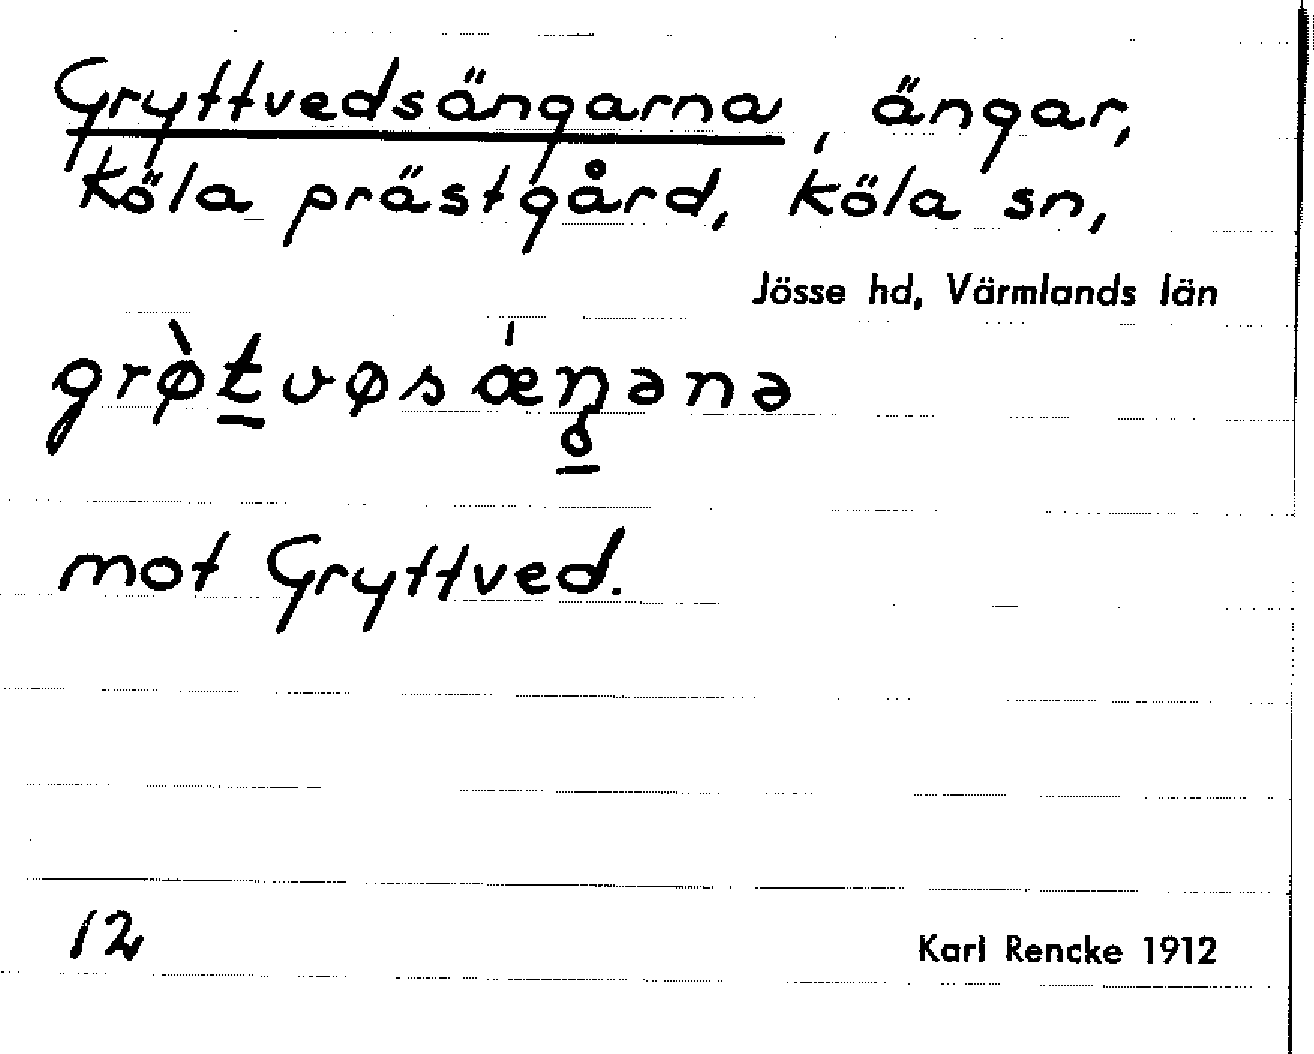 Gryttvedsängarna, ängar,
Köla prästgård, Köla sn,
Jösse hd, Värmlands län
grø̀t̲vøsǽŋ̲ənə
mot Gryttved.
12
Karl Rencke 1912